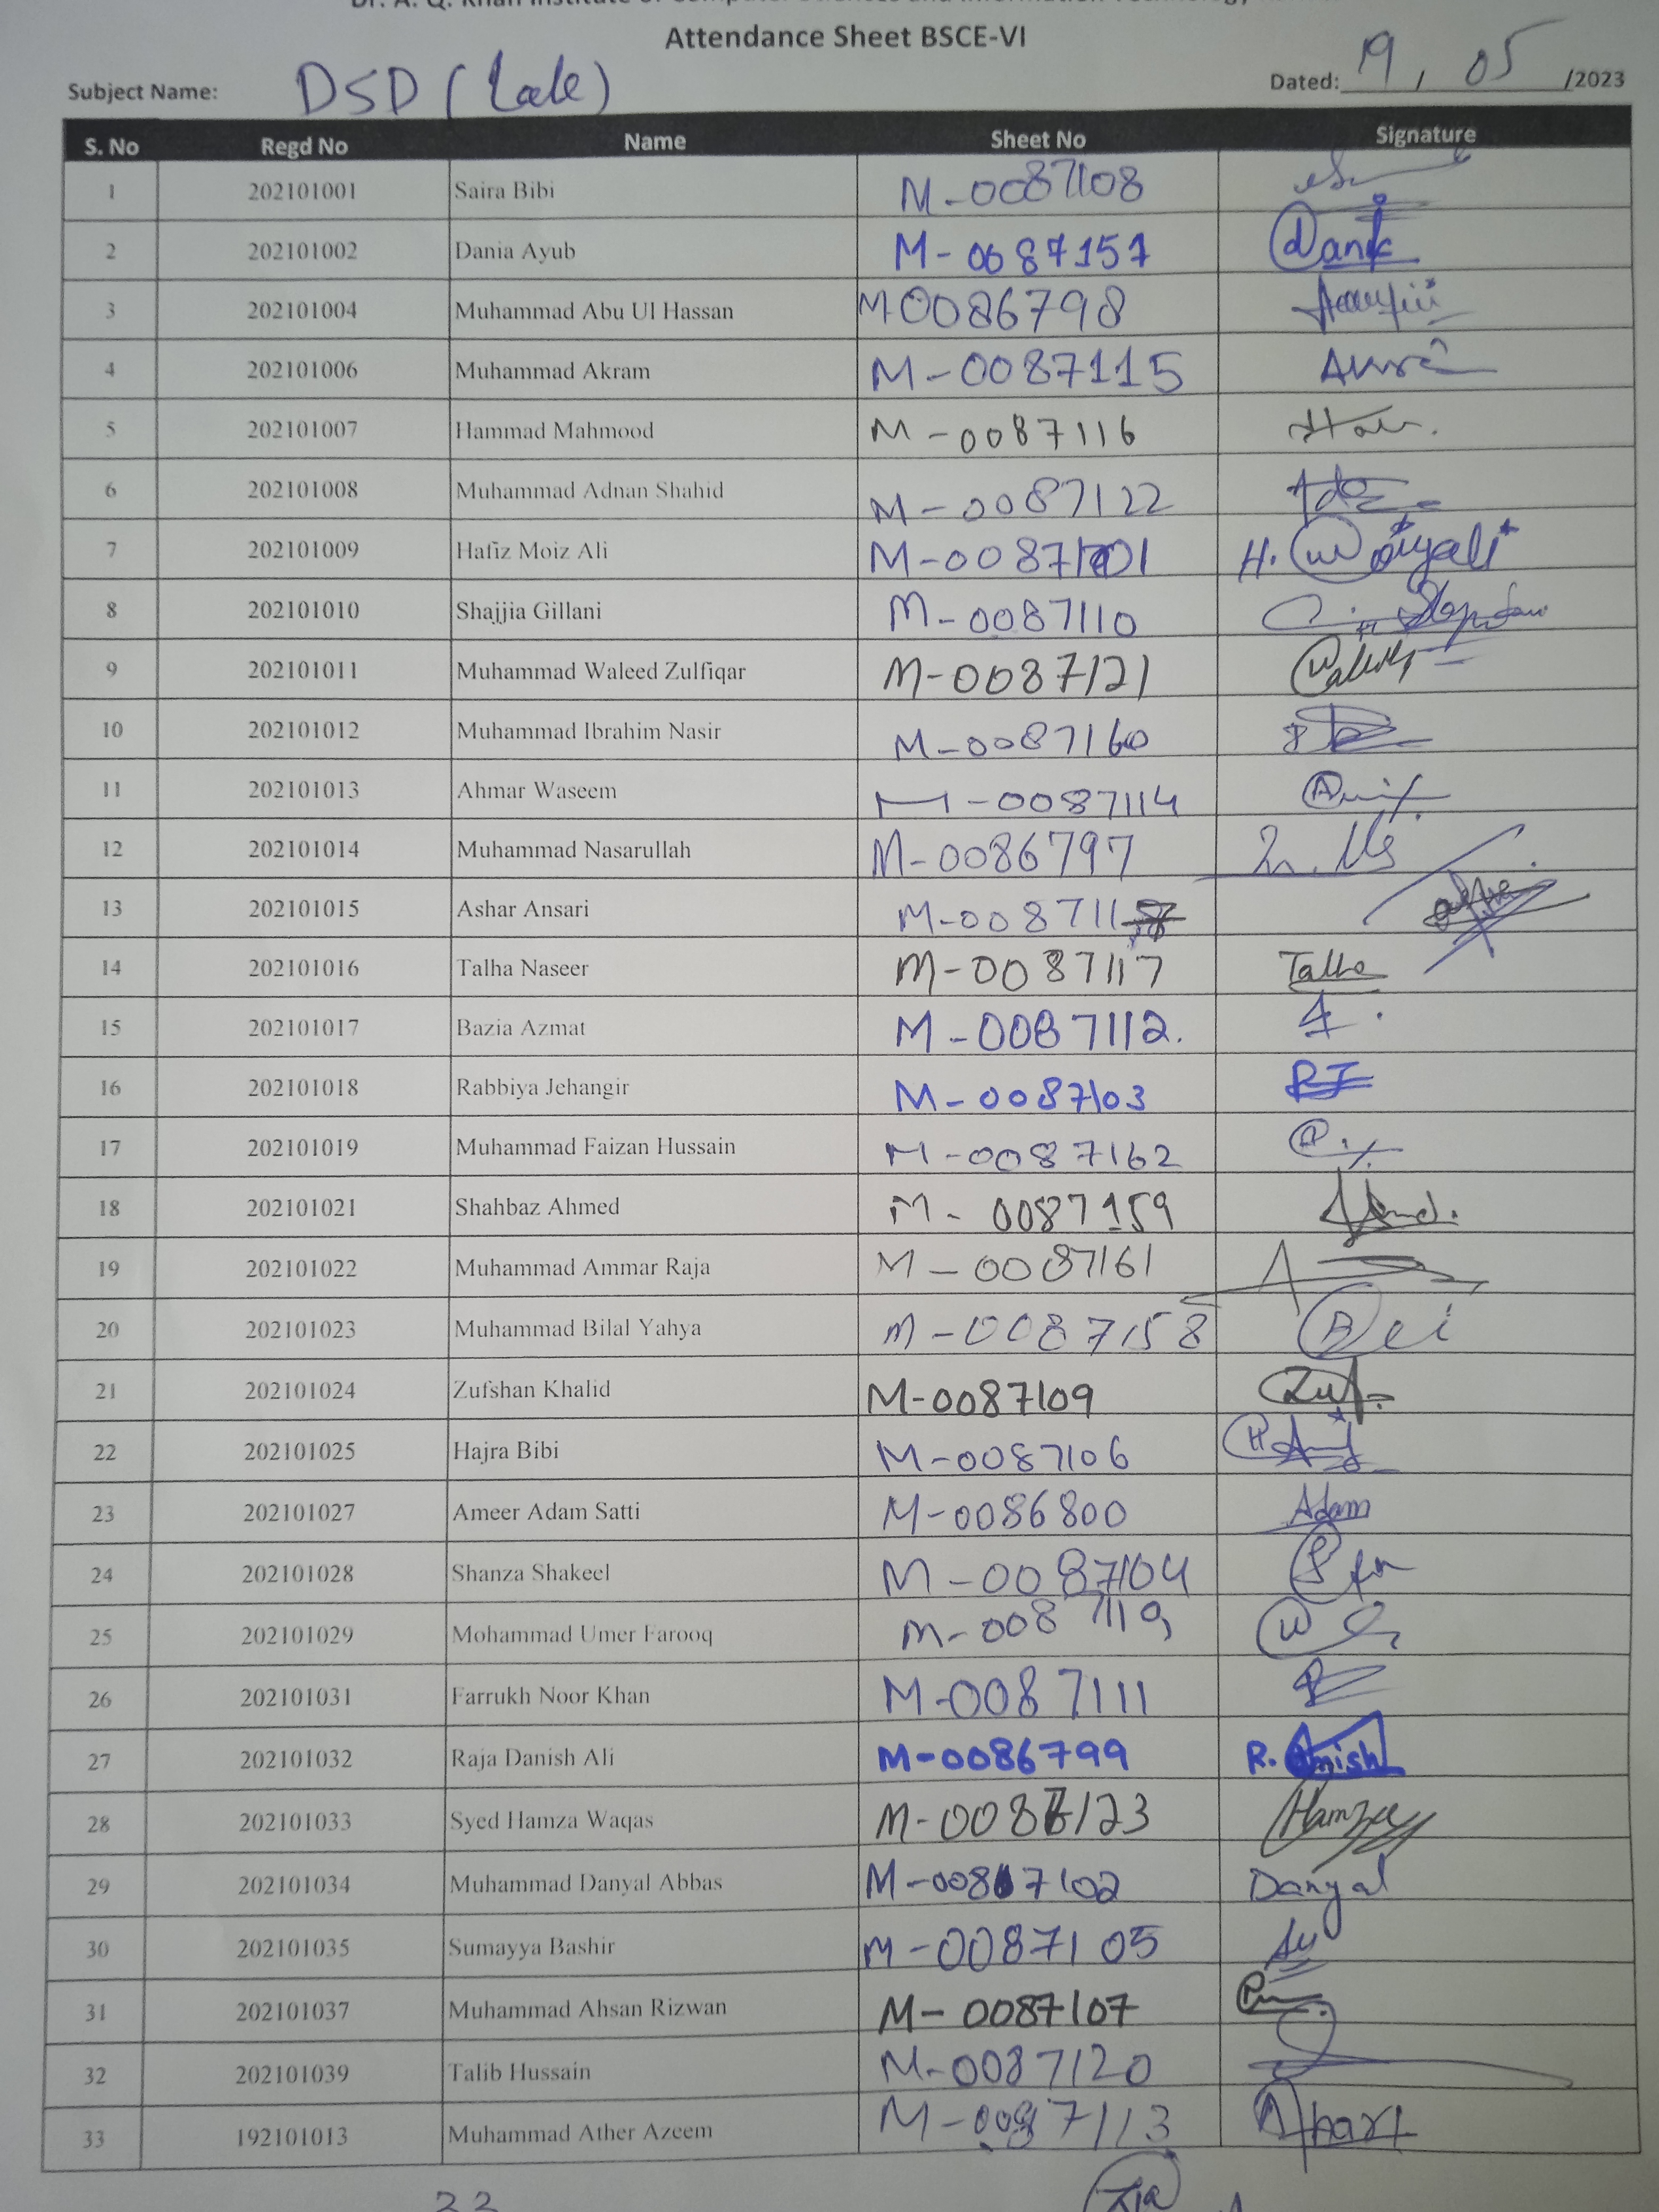 Dr. A. Q. Khan Institute of Computer Sciences and Information Technology
Attendance Sheet BSCE-VI
Subject Name: DSD (Lab) Dated: 19, 05 /2023
S. No Regd No Name Sheet No Signature
1 202101001 Saira Bibi M-0087108
2 202101002 Dania Ayub M-0087157 Dania
3 202101004 Muhammad Abu Ul Hassan M0086798
4 202101006 Muhammad Akram M-0087115
5 202101007 Hammad Mahmood M-0087116
6 202101008 Muhammad Adnan Shahid M-0087122
7 202101009 Hafiz Moiz Ali M-0087101
8 202101010 Shajjia Gillani M-0087110
9 202101011 Muhammad Waleed Zulfiqar M-0087121
10 202101012 Muhammad Ibrahim Nasir M-0087160
11 202101013 Ahmar Waseem M-0087114
12 202101014 Muhammad Nasarullah M-0086797
13 202101015 Ashar Ansari
14 202101016 Talha Naseer M-0087117 Talha
15 202101017 Bazia Azmat M-0087112.
16 202101018 Rabbiya Jehangir M-0087103 RJ
17 202101019 Muhammad Faizan Hussain M-0087162
18 202101021 Shahbaz Ahmed M-0087159
19 202101022 Muhammad Ammar Raja M-0087161
20 202101023 Muhammad Bilal Yahya M-0087158
21 202101024 Zufshan Khalid M-0087109
22 202101025 Hajra Bibi M-0087106
23 202101027 Ameer Adam Satti M-0086800 Adam
24 202101028 Shanza Shakeel M-0087104
25 202101029 Mohammad Umer Farooq M-0087119
26 202101031 Farrukh Noor Khan M-0087111
27 202101032 Raja Danish Ali M-0086799
28 202101033 Syed Hamza Waqas M-0087123 Hamza
29 202101034 Muhammad Danyal Abbas M-0087102 Danyal
30 202101035 Sumayya Bashir M-0087105
31 202101037 Muhammad Ahsan Rizwan M-0087107
32 202101039 Talib Hussain M-0087120
33 192101013 Muhammad Ather Azeem M-0087113
33